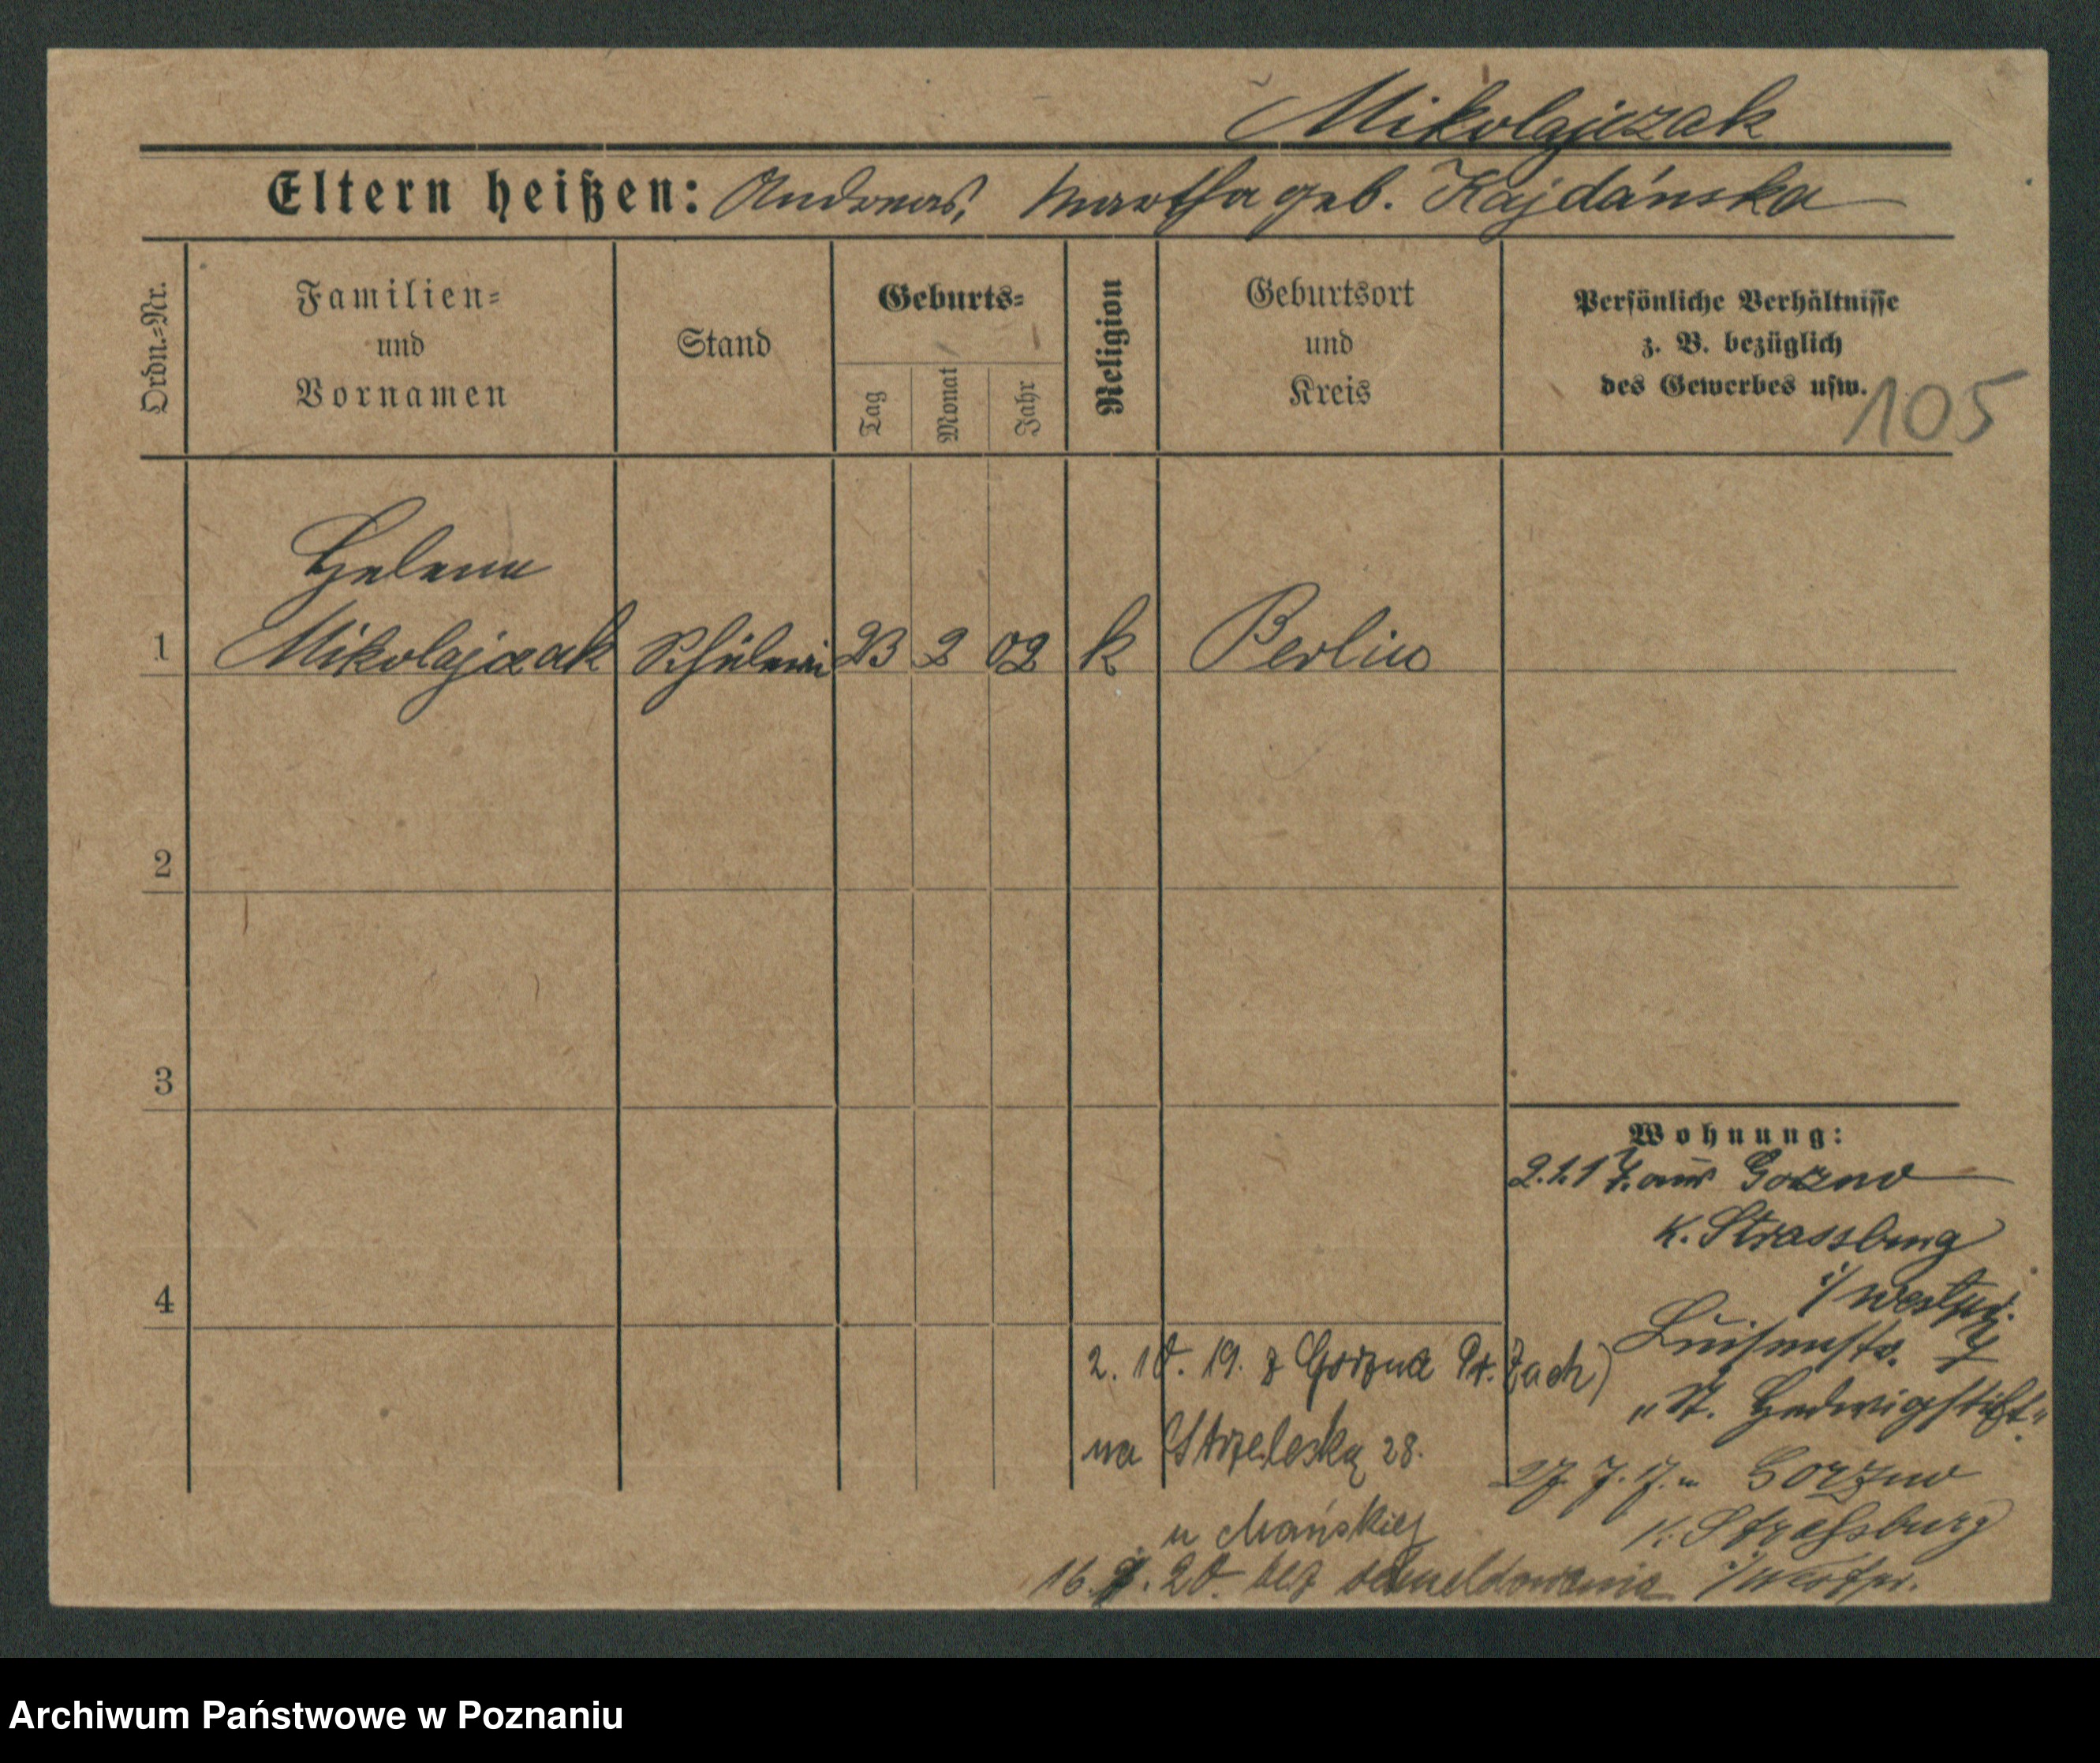 Mikolajczak
Eltern heißen: Andreas, Martha geb. Kajdánska
Ordn.=Nr.
Familien=
und
Vornamen
Stand
Geburts=
Tag
Monat
Jahr
Religion
Geburtsort
und
Kreis
Persönliche Verhältnisse
z. B. bezüglich
des Gewerbes usw.
105
Helena
1 Mikolajczak Schülerin 23 2 02 k Berlin
2
3
4
Wohnung:
2.1.17. aus Gorzno
K. Strassburg
i/ Westpr.
Luisenstr. 7
"St. Hedwigstift"
27. 7. 17. n Gorzno
K. Strassburg
i/ Westpr.
2. 10. 19. z Gorzna Pr. Zach)
na Strzelecką 28.
u Mańskiej
16. 9. 20. bez odmeldowania
Archiwum Państwowe w Poznaniu